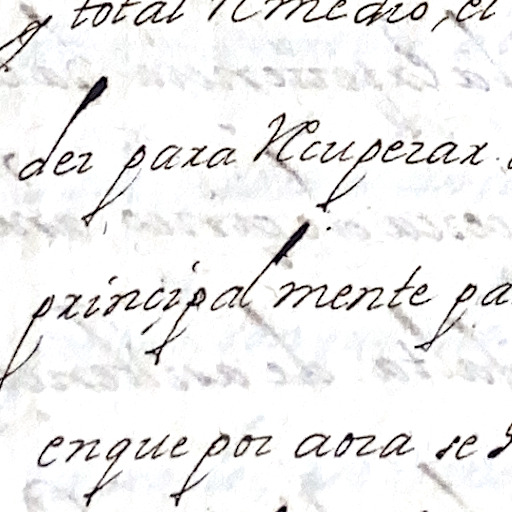 y total Remedio, el
der para Recuperar
principalmente pa
enque por aora se